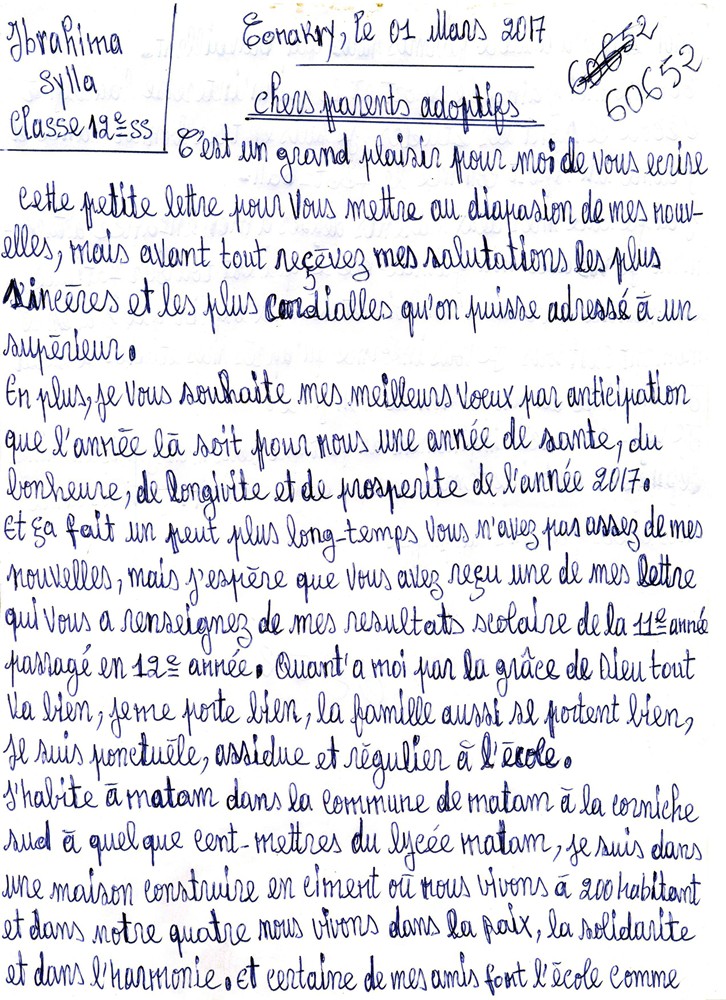 Ibrahima
Sylla
Classe 12e SS
Conakry, le 01 Mars 2017
60652
60652
chers parents adoptifs
C'est un grand plaisir pour moi de vous ecrire
cette petite lettre pour vous mettre au diapasion de mes nouv-
elles, mais avant tout reçevez mes salutations les plus
sincères et les plus cordialles qu'on puisse adressé à un
supérieur.
En plus, je vous souhaite mes meilleurs voeux par anticipation
que l'année là soit pour nous une année de sante, du
bonheure, de longivite et de prosperite de l'année 2017.
Et ça fait un peut plus long-temps vous n'avez pas assez de mes
nouvelles, mais j'espère que vous avez reçu une de mes lettre
qui vous a renseignez de mes resultats scolaire de la 11e année
passagé en 12e année. Quant'a moi par la grâce de Dieu tout
va bien, je me porte bien, la famille aussi se portent bien,
je suis ponctuèle, assidue et régulier à l'école.
J'habite à matam dans la commune de matam à la corniche
sud à quelque cent-mettres du lycée matam, je suis dans
une maison construire en ciment où nous vivons à 200 habitant
et dans notre quatre nous vivons dans la paix, la solidarite
et dans l'harmonie. et certaine de mes amis font l'école comme